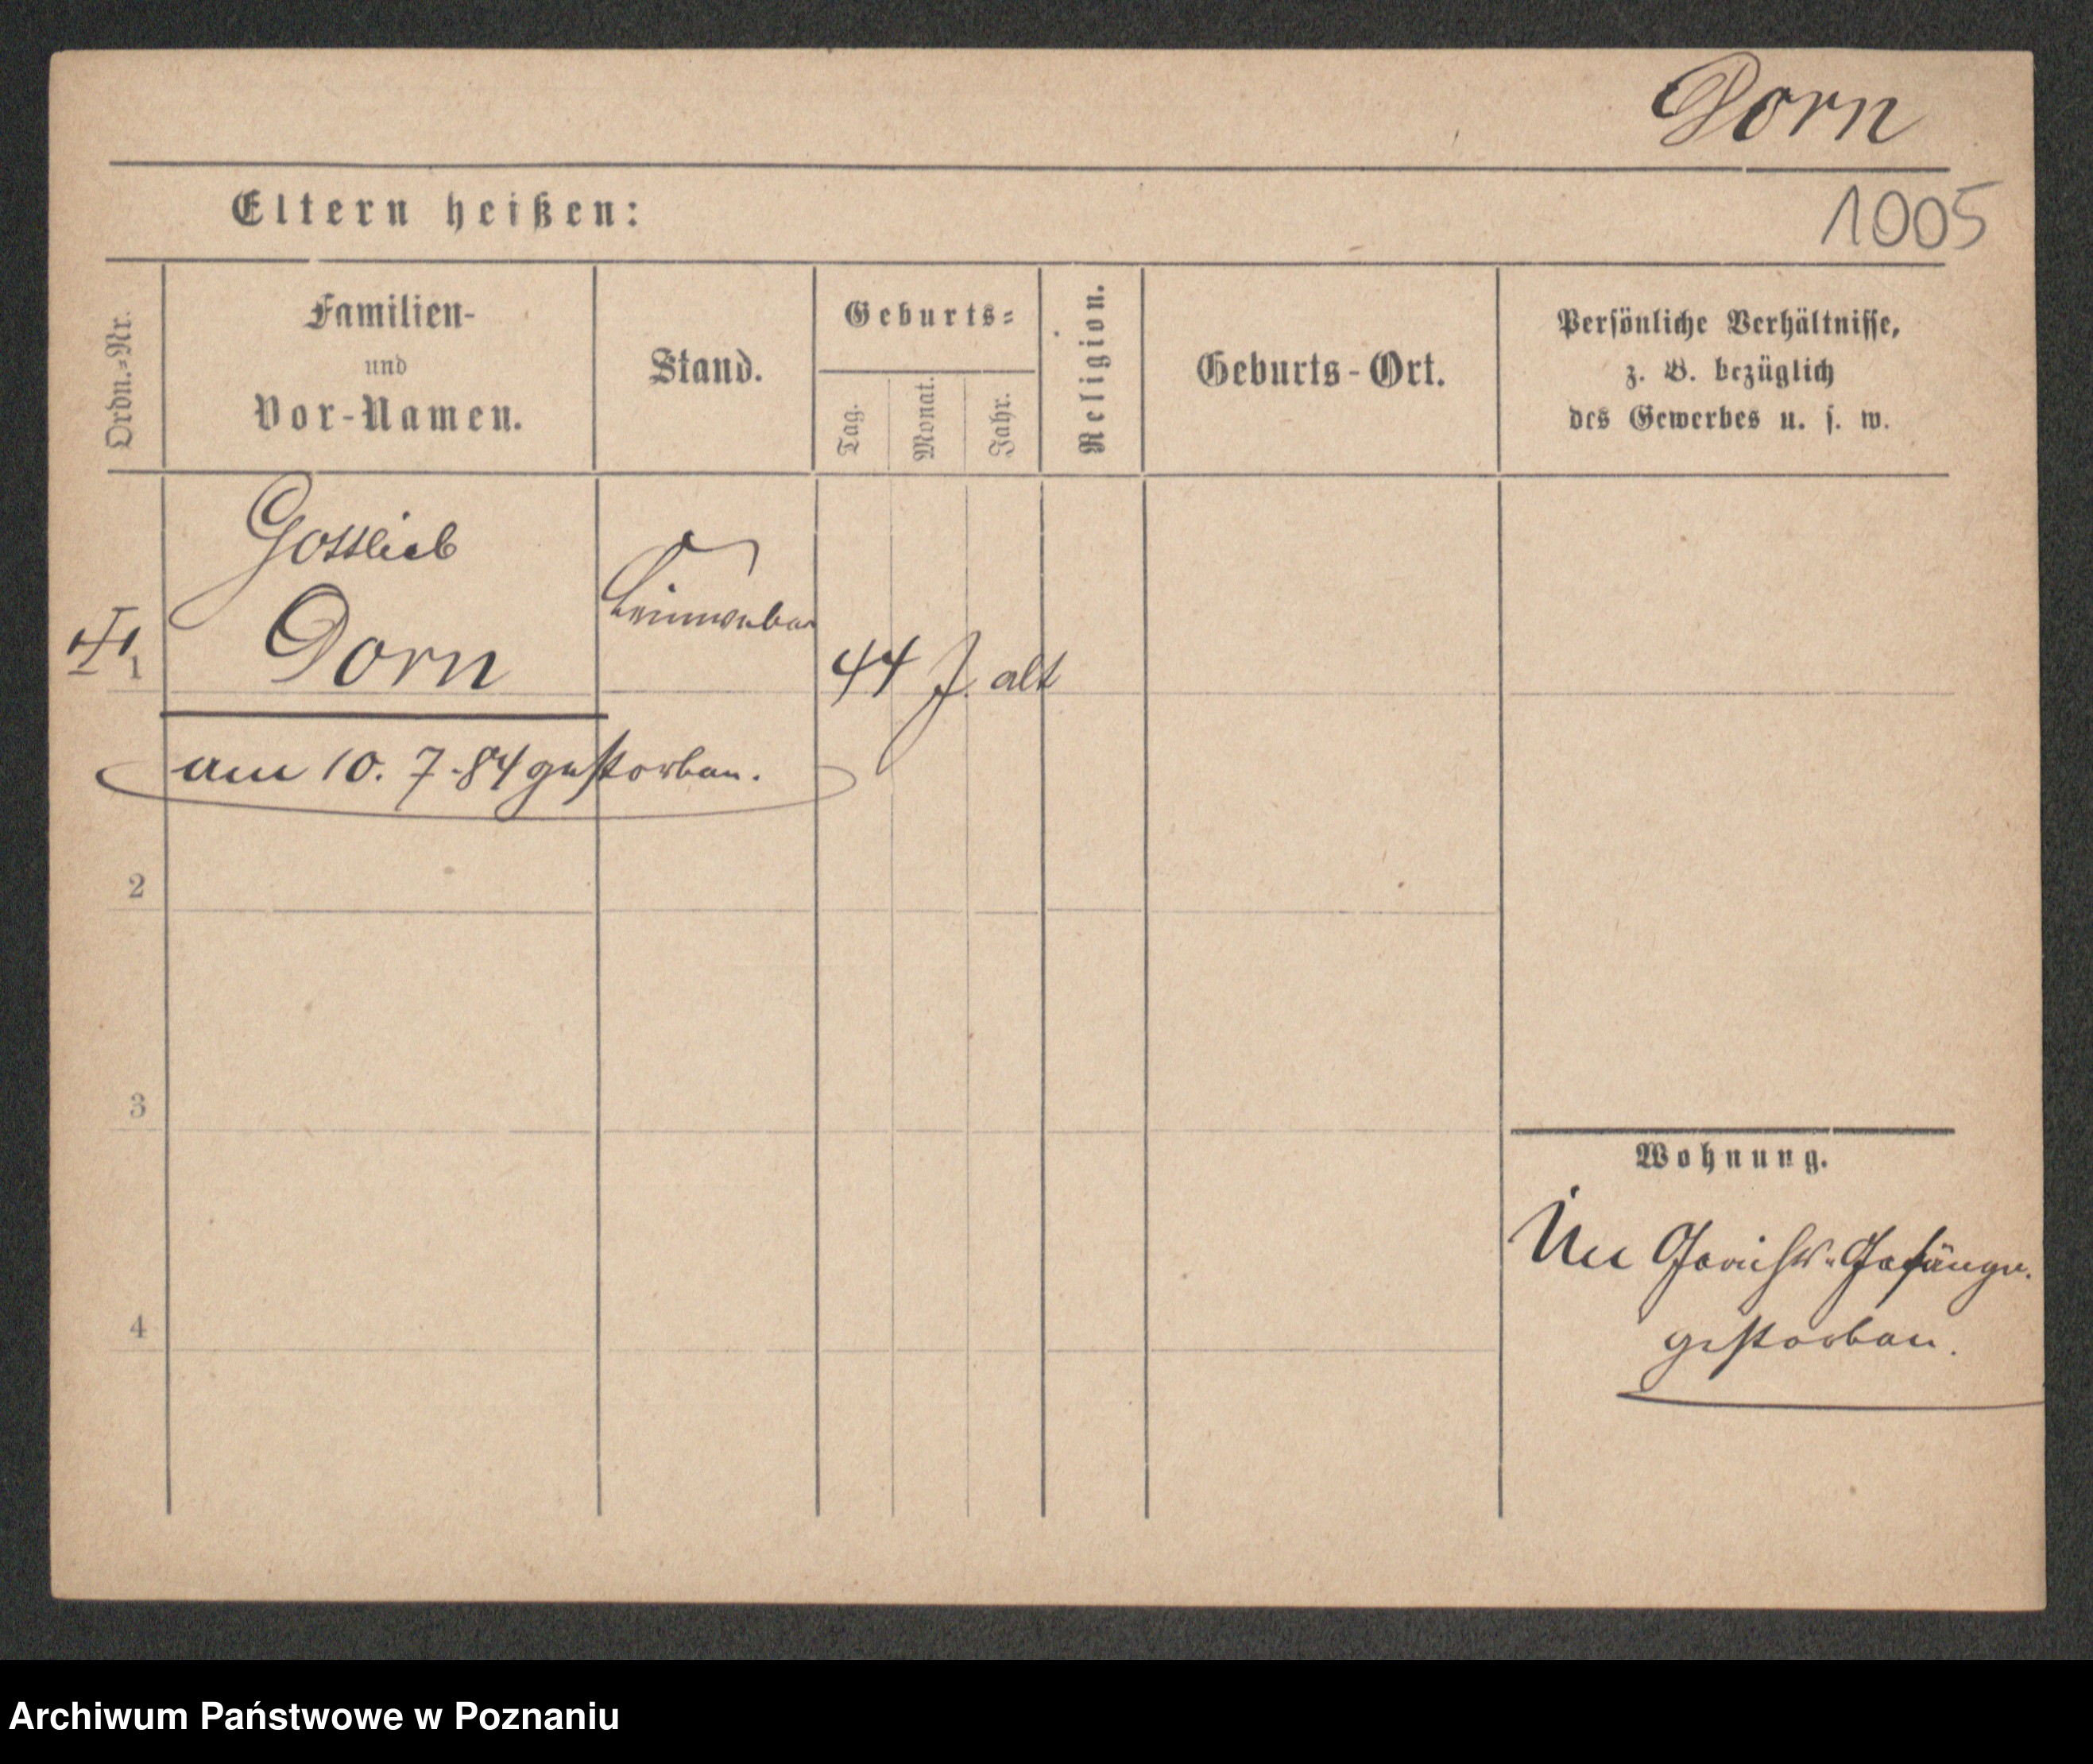 Dorn
Eltern heißen:
1005
Ordn.-Nr.
Familien-
und
Vor-Namen.
Stand.
Geburts-
Tag.
Monat.
Jahr.
Religion.
Geburts-Ort.
Persönliche Verhältnisse,
z. B. bezüglich
des Gewerbes u. s. w.
Gottlieb
1
Dorn
44 J. alt
am 10. 7. 84 gestorben.
2
3
4
Wohnung.
Im Gerichts-Gefängn.
gestorben.
Archiwum Państwowe w Poznaniu